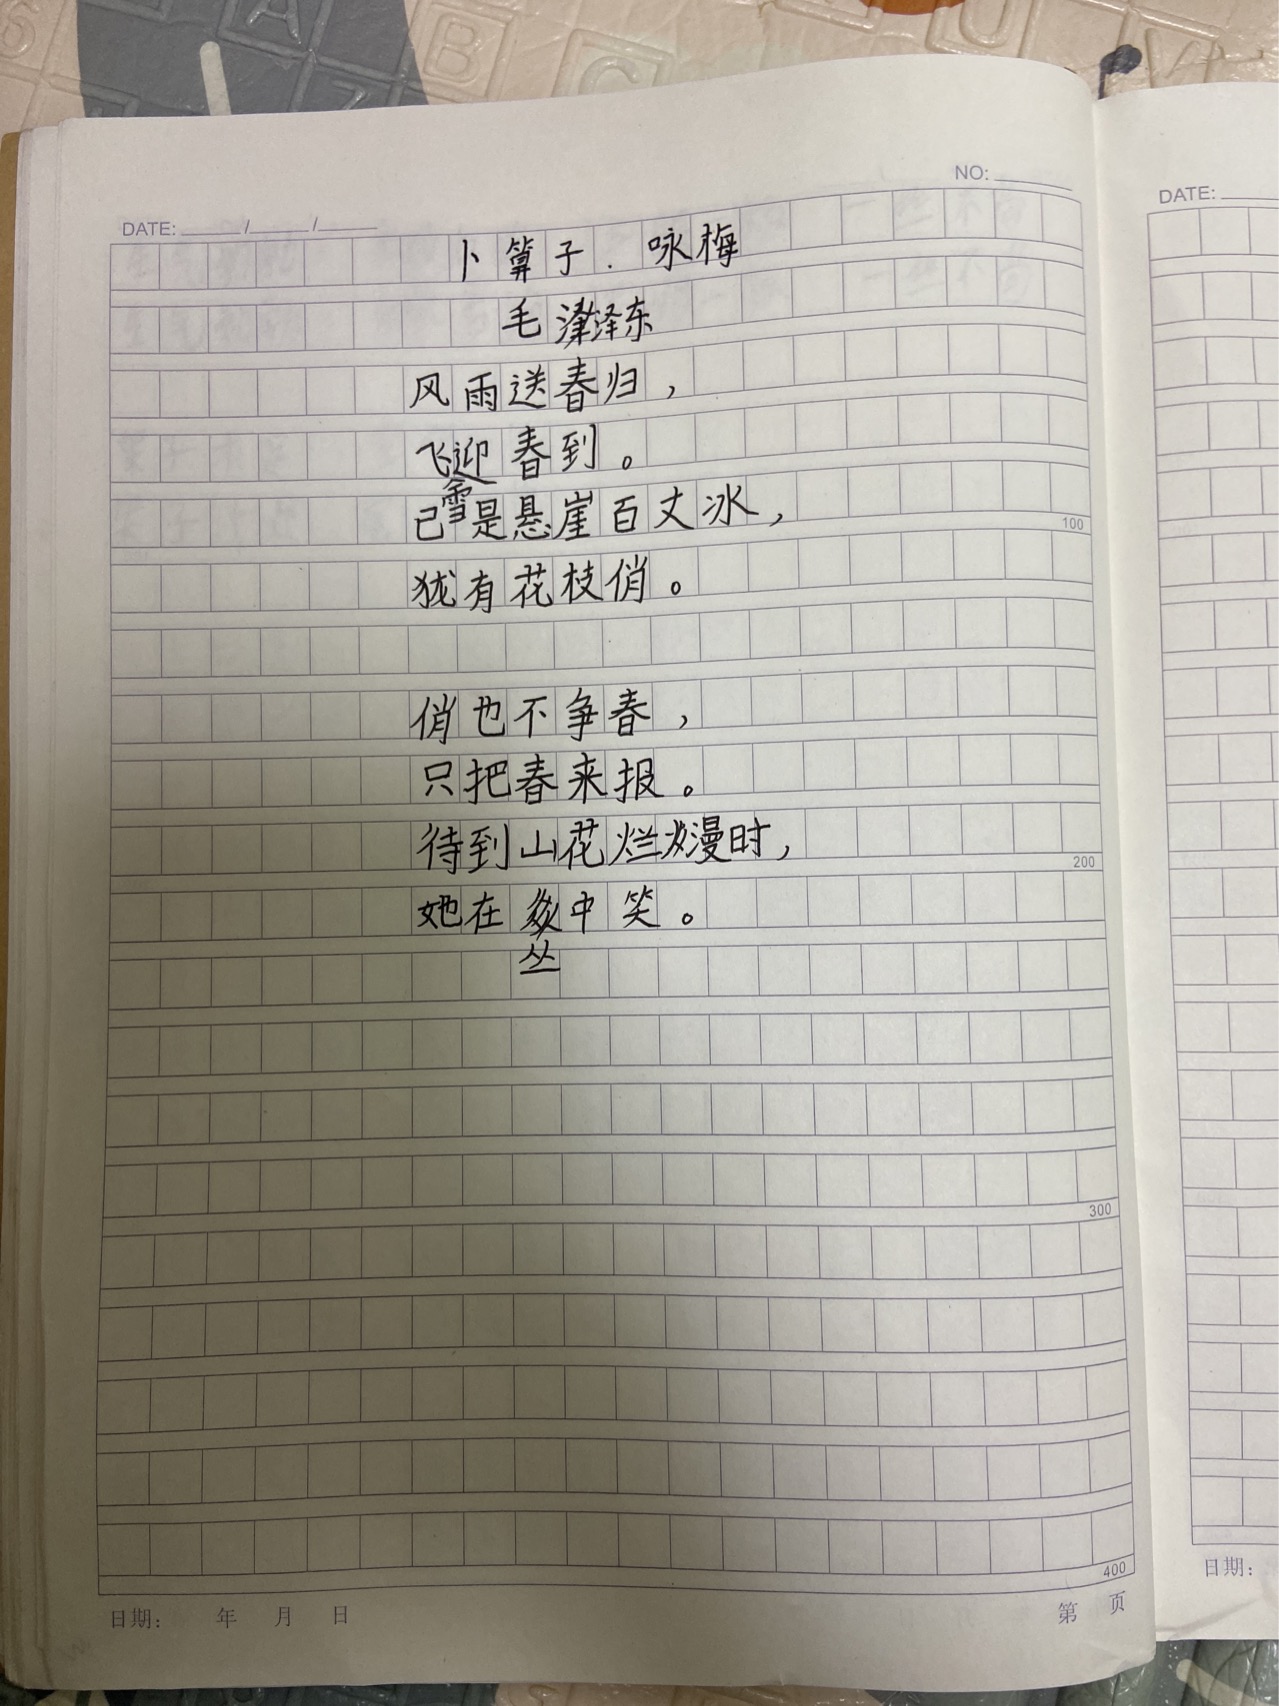 NO:
DATE: / /
卜算子·咏梅
毛泽东
风雨送春归，
飞雪迎春到。
已是悬崖百丈冰，
100
犹有花枝俏。
俏也不争春，
只把春来报。
待到山花烂漫时，
200
她在丛中笑。
300
400
日期： 年 月 日
第 页
DATE:
日期：